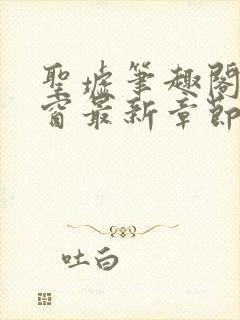 聖墟筆趣閣
窗最新章節
吐白